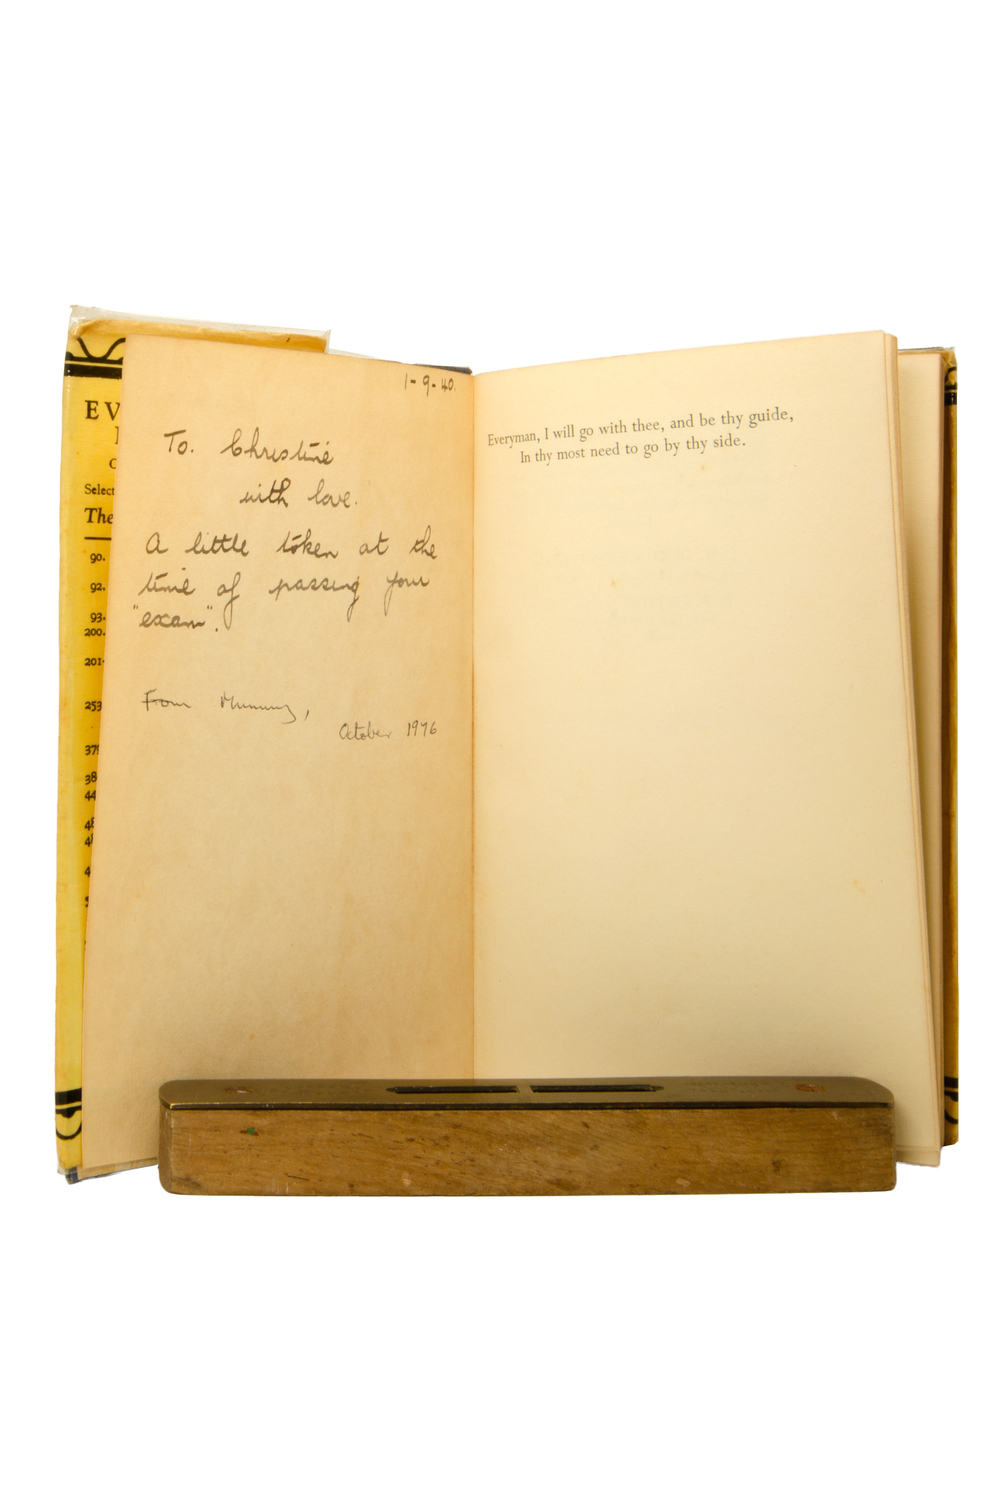 EV
Select
The
90.
92.
93.
200.
201.
253
379
38
44
1-9-40.
To. Christine
with love.
A little token at the
time of passing your
"exam".
From Mummy,
October 1976
Everyman, I will go with thee, and be thy guide,
In thy most need to go by thy side.